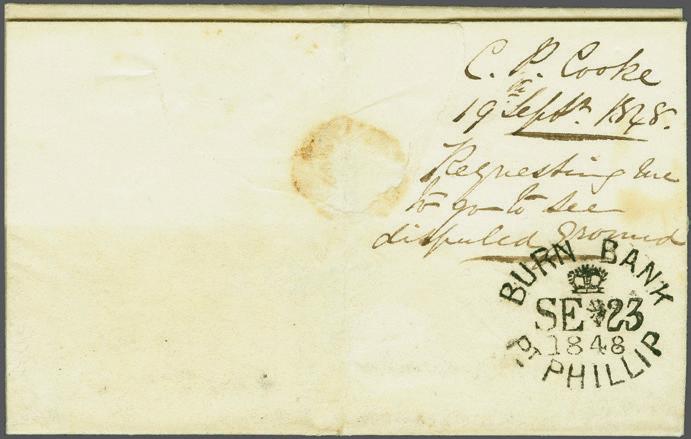 C. P. Cooke
19th Septr. 1848.
Requesting me
to go to see
disputed ground
BURN BANK
SE 23
1848
PT PHILLIP